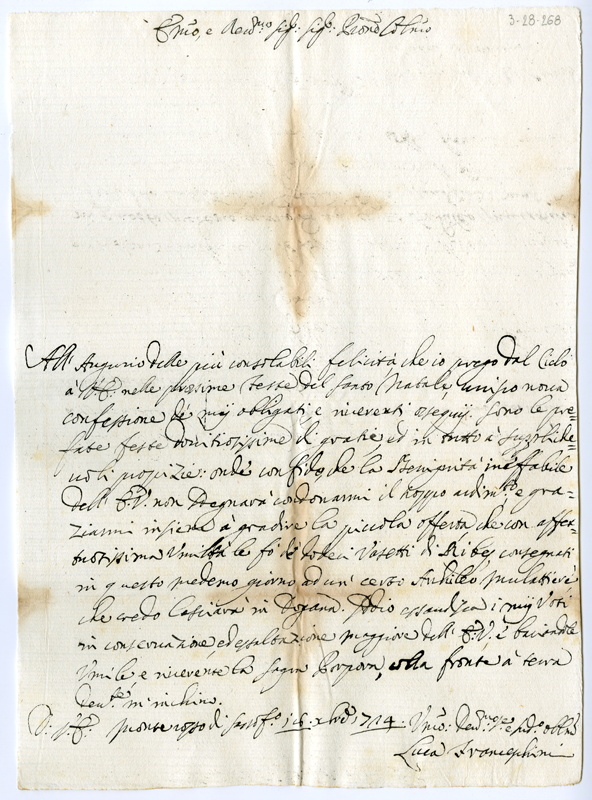 3-28-268
Emo, e Revdmo Sigr: Sigr: Prone Colmo
All' Augurio delle più consolabili felicità che io prego dal Cielo
à V. E. nelle prossime feste del Santo Natale, unisco nova
confessione de miej obligati e riverenti ossequij. Sono le pre=
fate feste dovitiosissime di gratie ed in tutto à
propizie: onde confido, che la Benignità ineffabile
dell' E. V. non sdegnarà condonarmi il troppo ardimto e gra=
ziarmi insieme à gradire la piccola offerta che con affet=
tuosissima Umiltà le fò de Vasetti di Ribes consegnati
in questo medemo giorno ad un' certo mulattiere
che credo lasciarà in Dogana. Iddio essaudisca i miej Voti
in conservazione ed esaltazione maggiore dell' E. V., e baciandole
Umile e riverente la Sagra Porpora, colla fronte à terra
Devte m' inchino.
D: V. E. 1714. Umo Devmo e obblmo
Luca